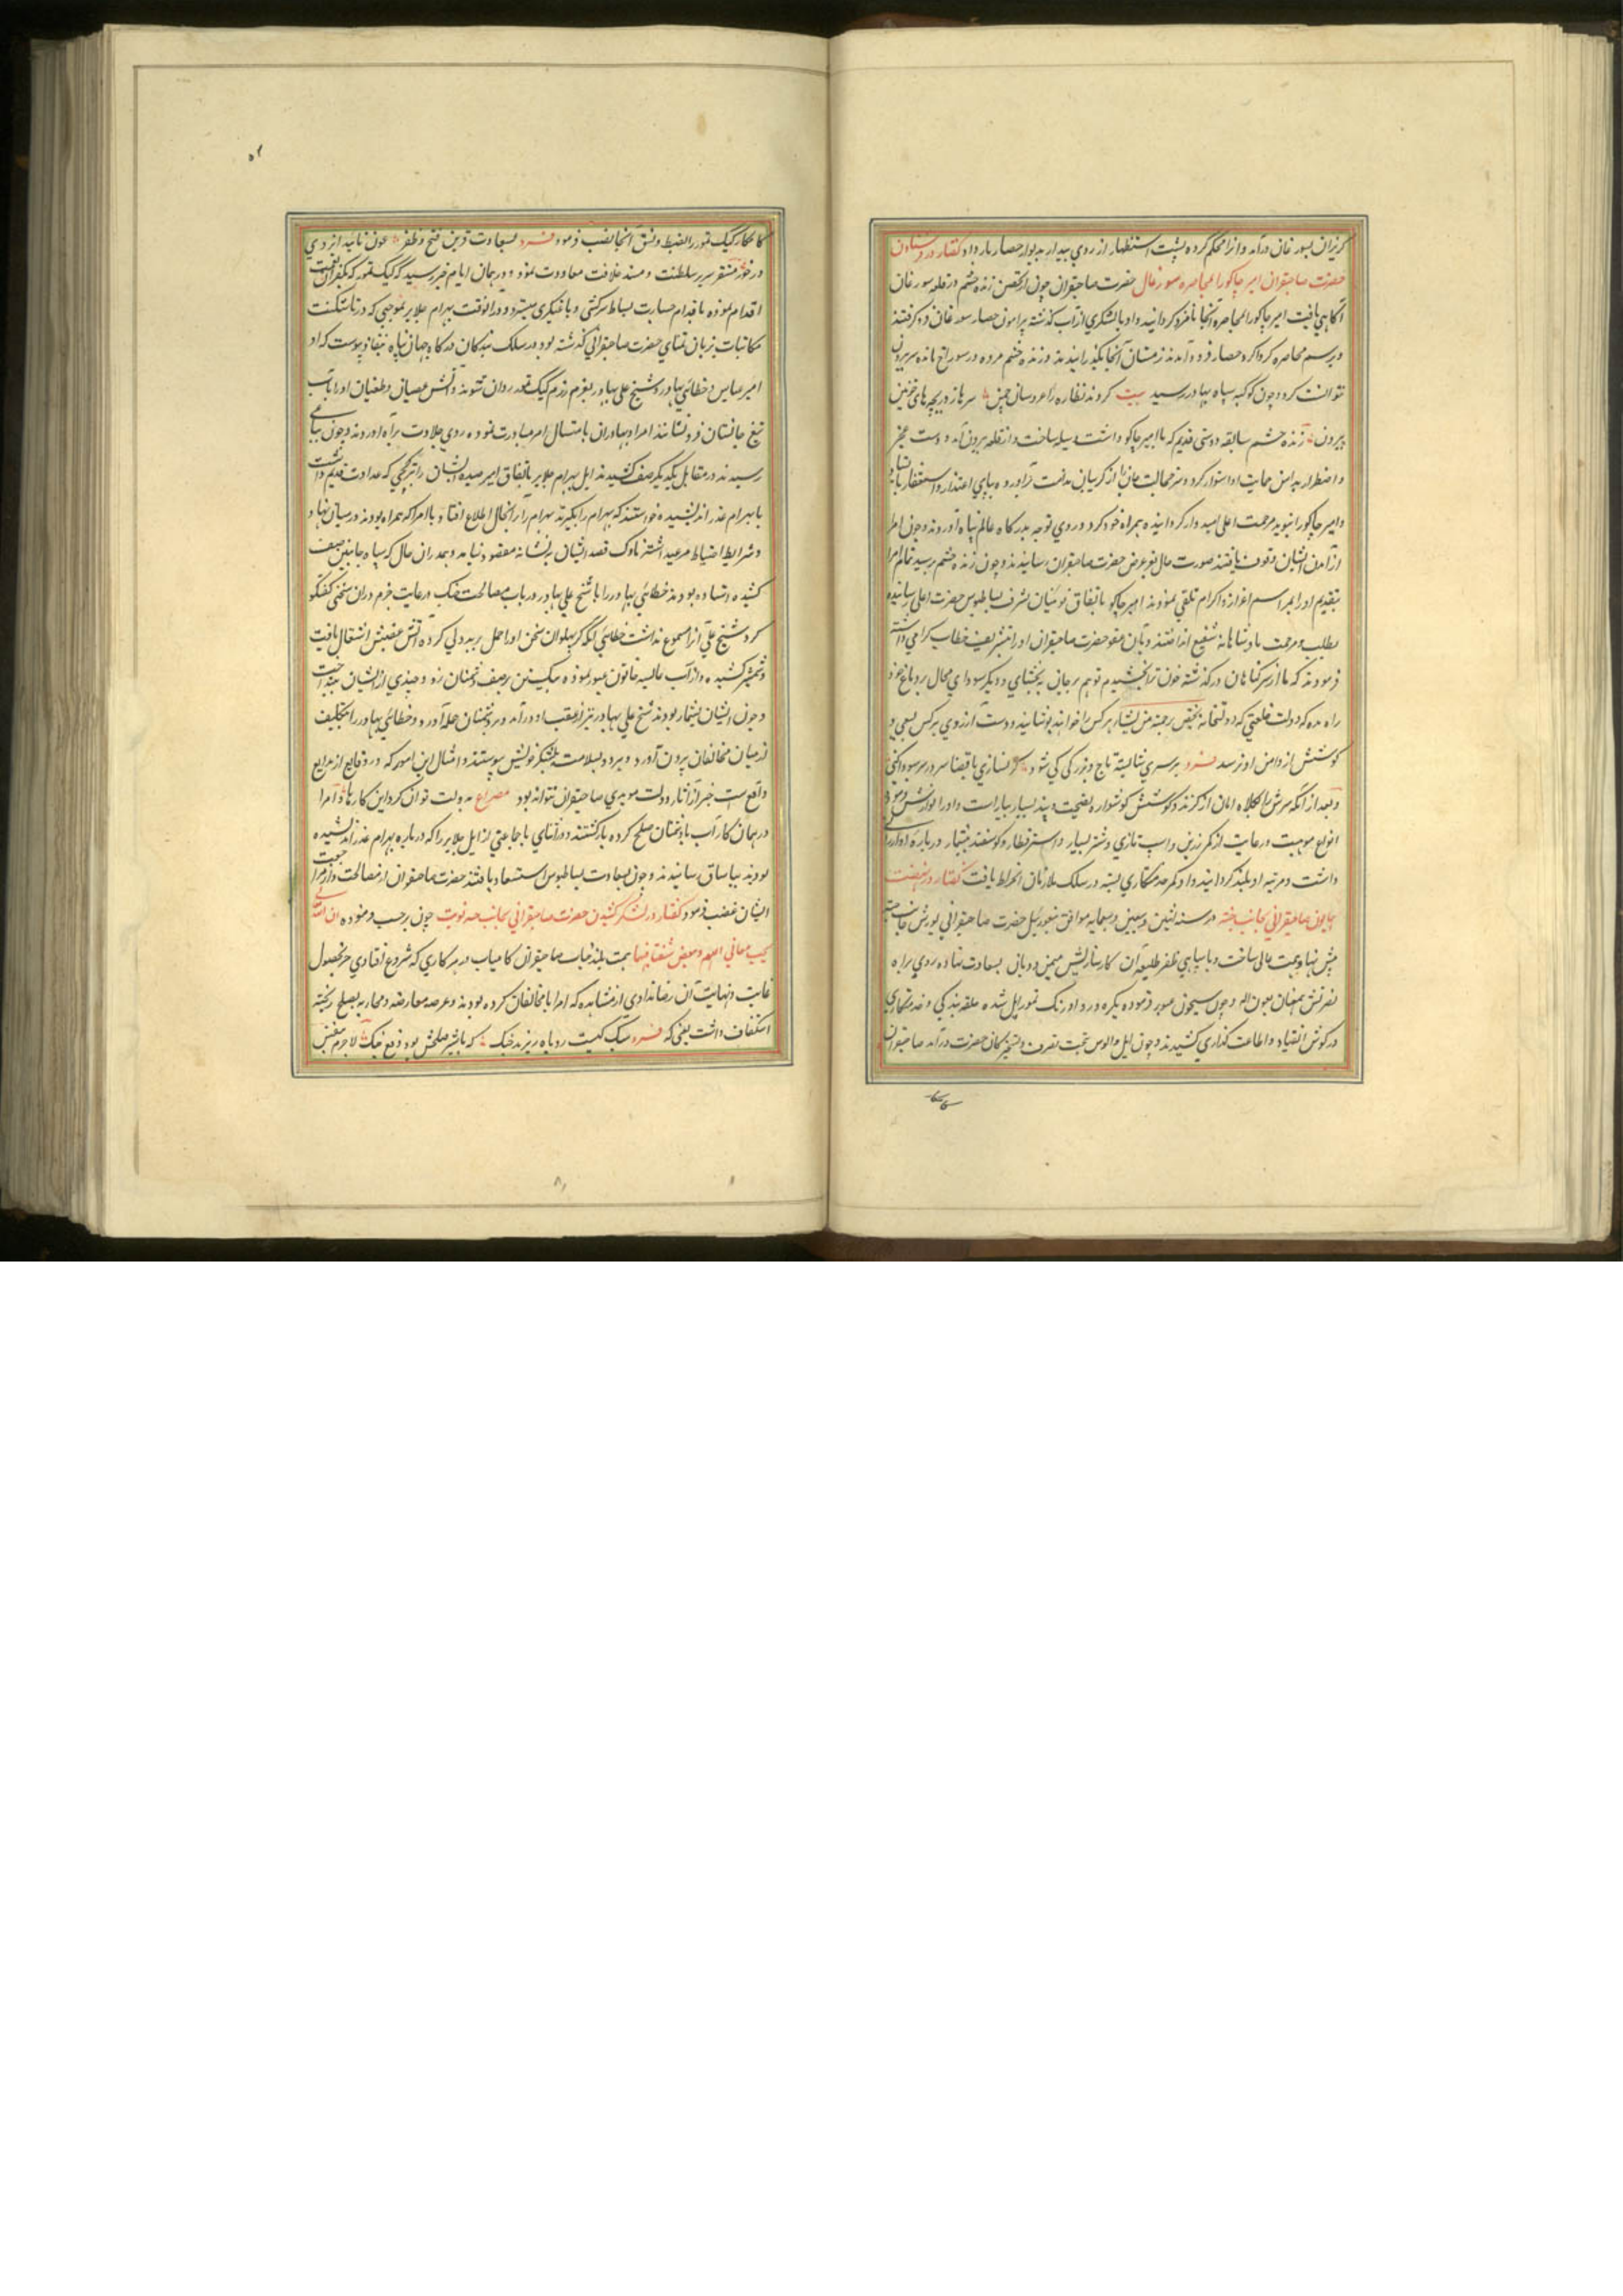 کریزان بسورغان درآمد و آنرا محکم کرده پشت استظهار از روی پندار بدیوار حصار باز داد گفتار در فرستادن
حضرت صاحبقران امیر جاکو را بمحاصره سورغان حضرت صاحبقران چون از تحصن زنده چشم در قلعه سورغان
آکاهی یافت امیر جاکو را بمحاصره آنجا نامزد کردانید و او با لشکری از آب کذشته پیرامون حصار سورغان فرو کرفتند
و برسم محاصره کرداکرد حصار فرود آمدند زمستان آنجا بکذرانیدند و زنده چشم مرده در سوراخ مانده سر بیرون
نتوانست کرد و چون کوکبه سپاه بهار در رسید بیت کردند نظاره را عروسان چمن سرها ز دریچه های چوبین
بیرون زنده چشم سابقه دوستی قدیم که با امیر جاکو داشت وسیله ساخت و از قلعه بیرون آمد و دست عجز
و اضطرار بدامن حمایت او استوار کرد و سر خجالت از کریبان ندامت برآورده بپای اعتذار و استغفار بایستاد
و امیر جاکو او را بنوید مرحمت اعلی امیدوار کردانیده همراه خود کرد و روی توجه بدرکاه عالم پناه آوردند و چون امرا
از آمدن ایشان وقوف یافتند صورت حال بعز عرض حضرت صاحبقران رسانیدند و چون زنده چشم برسید تمام امرا
بتقدیم او را بمراسم اعزاز و اکرام تلقی نمودند امیر جاکو باتفاق نوئینان بشرف بساط بوس حضرت اعلی رسانیده
بطلب مرحمت پادشاهانه شفیع انداختند و بآن عفو حضرت صاحبقران او را بتشریف خطاب کرامی داشته
فرمودند که ما از سر کناهان درکذشته خون ترا بخشیدیم تو هم بر جانی ببخشای و دیکر سودای محال بر دماغ خود
راه مده که دولت خلعتی که در دولتخانه یختص برحمته من یشاء هر کس را خواهند پوشانیده و دست آرزوی هر کس بسعی و
کوشش از دامن او نرسد فرد بر سری شایسته تاج و بزرکی کی شود کر نسازی با قضا سر در سر سودا کنی
و بعد از آنکه سرش را بکلاه امان از کرند و کوشش کوشواره نصیحت و پند بسیار بیاراست و او را نوازش فرموده
انواع موهبت و رعایت از کمر زرین و اسب تازی و شتر بسیار و استر قطار و کوسفند بیشمار درباره او ارزانی
داشت و مرتبه او بلند کردانید و او کمر خدمتکاری بسته در سلک ملازمان انخراط یافت گفتار در نهضت
همایون صاحبقرانی بجانب جته در سنه اثنین و سبعین و سبعمایه موافق حضرت صاحبقرانی یورش جانب جته
پیش نهاد همت عالی ساخت و با سپاهی ظفر طلیعه آن کارساز لشکر میمن و دولتی بسعادت نهاده روی براه
نصرتش همعنان بعون اله و چون سیحون عبور فرموده یکره در داد رنک تمور ایل شده حلقه بندکی و خدمتکاری
در کوش انقیاد و اطاعت کذاری کشیدند و چون ایل و الوس بتحت تصرف و تسخیر بندکان حضرت درآمد صاحبقران
کامکار
۵۱
کامکار کپک تمور را بضبط و نسق آنجا نصب فرمود فرد بسعادت قرین فتح و ظفر عون تائید ایزدی
در خور مستقر سریر سلطنت و مسند خلافت معاودت نمود و در همان ایام خبر رسید که کپک تمور که بکفران نعمت
اقدام نموده باقدام جسارت بساط سرکشی و یاغیکری میسپرد و در انوقت بهرام جلایر بموجبی که در تاشکنت
مکاتبات بزبان ثنای حضرت صاحبقرانی کذشته بود در سلک بندکان درکاه جهان پناه بنفاذ پیوست که او
امیر عباس و خطائی بهادر و شیخ علی بهادر بعزم رزم کپک تمور روان شوند و آتش عصیان و طغیان او را بآب
تیغ جانستان فرو نشانند امرا و بهادران بامتثال امر مبادرت نموده روی جلادت براه آوردند و چون بیاغی
رسیدند در مقابل یکدیکر صف کشیدند ایل بهرام جلایر باتفاق امیر ایشان را که عداوت قدیم داشت
با بهرام غدر اندیشیده خواستند که بهرام را بکیرند بهرام را از آنحال اطلاع افتاد با امرا که همراه بودند در میان نهاد
و شرایط احتیاط مرعی داشتند ناوک قصد ایشان بر نشانه مقصود نیامد و همدران حال که سپاه جانبین صف
کشیده ایستاده بودند خطائی بهادر را با شیخ علی بهادر در باب مصالحت جنک و رعایت حزم دران سخنی کفتکو
کرد شیخ علی آنرا مسموع نداشت خطائی آنکه کر پهلوان سخن او را حمل بر بد دلی کرده آتش غضبش اشتعال یافت
و شمشیر کشیده و از آب عایشه خاتون عبور نموده یکتن بر صف دشمنان زد و چندی از ایشان بینداخت
و چون ایشان بیشمار بودند شیخ علی بهادر نیز از عقب او درآمد و بر دشمنان حمله آورد و خطائی بهادر را بتکلیف
از میان مخالفان بیرون آورد و هر دو بسلامت بلشکر خویش پیوستند و امثال این امور که در وقایع از بدایع
واقعست جز از آثار دولت مویدی صاحبقران نتواند بود مصراع بدولت توان کرد این کارها و امرا
در همان کار آب با دشمنان صلح کرده باز کشتند و در اثنای با جماعتی از ایل جلایر را که درباره بهرام غدر اندیشیده
بودند بیاساق رسانیدند و چون بسعادت بساط بوس استسعاد یافتند حضرت صاحبقران از مصالحت و مراجعت
ایشان غضب فرمود گفتار در لشکر کشیدن حضرت صاحبقرانی بجانب جته نوبت چون برحسب فرموده ان الله
یحب معالی الهمم و یبغض سفسافها همت بلند جناب صاحبقران کامیاب در هر کاری که شروع افتادی جز بحصول
غایت و نهایت آن رضا ندادی از مشاهده که امرا با مخالفان کرده بودند و عرصه معارضه و محاربه بصلح ریخته
استنکاف داشت یعنی که فرد سبک کیست روباه ریزید چنک که با شیر جنکش بود وقع جنک لاجرم بنفس